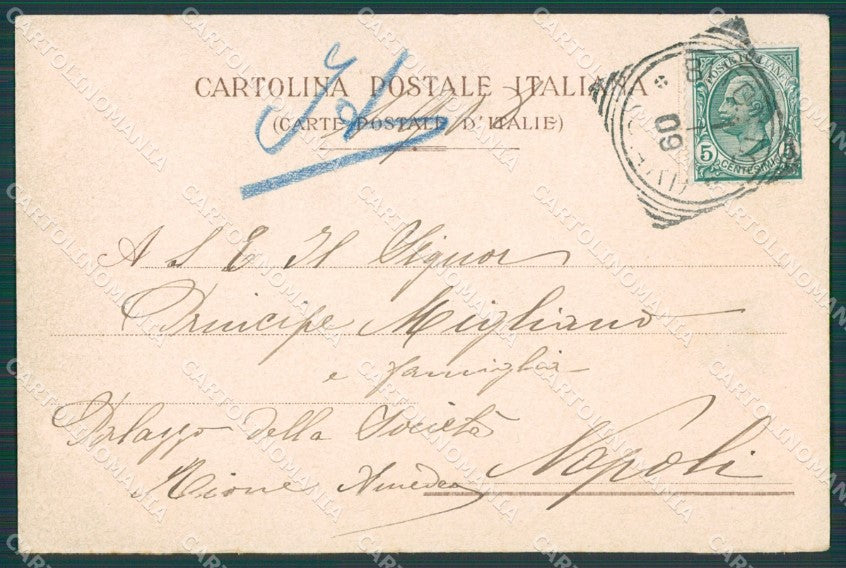 CARTOLINA POSTALE ITALIANA
(CARTE POSTALE D'ITALIE)
POSTE ITALIANE
5 CENTESIMI 5
8
09
A S E Il Signor
Principe Migliano
e famiglia
Palazzo della Società
Rione Amedeo
Napoli
CARTOLINOMANIA